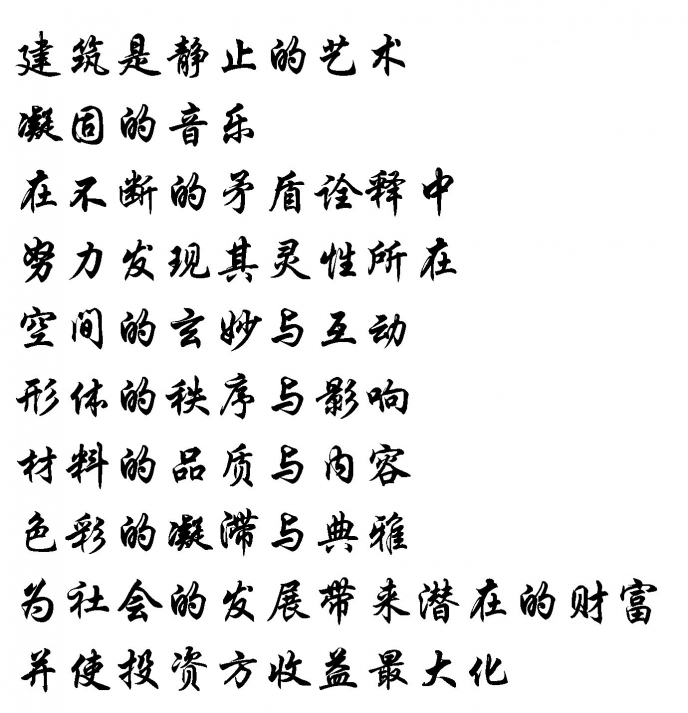 建筑是静止的艺术
凝固的音乐
在不断的矛盾诠释中
努力发现其灵性所在
空间的玄妙与互动
形体的秩序与影响
材料的品质与内容
色彩的凝滞与典雅
为社会的发展带来潜在的财富
并使投资方收益最大化